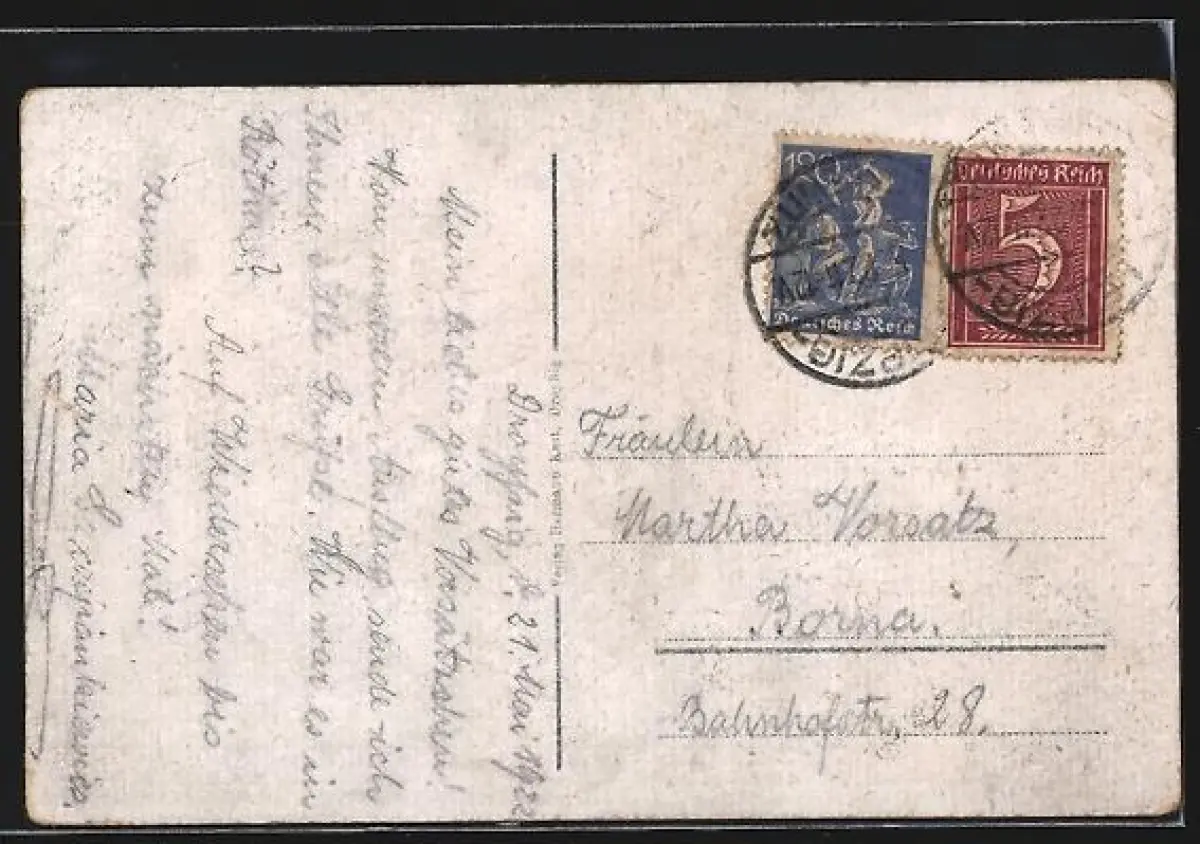 Groitzsch, d. 21. Mai 1922
Mein liebes gutes Vorsätzchen!
Von unserem Ausflug sende ich
Ihnen alle Grüsse. Wie war es in
Auf Wiedersehen bis
zum nächsten Mal!
Maria
120
Deutsches Reich
Deutsches Reich
5
LEIPZIG
Fräulein
Martha Vorsatz,
Borna.
Bahnhofstr. 28.